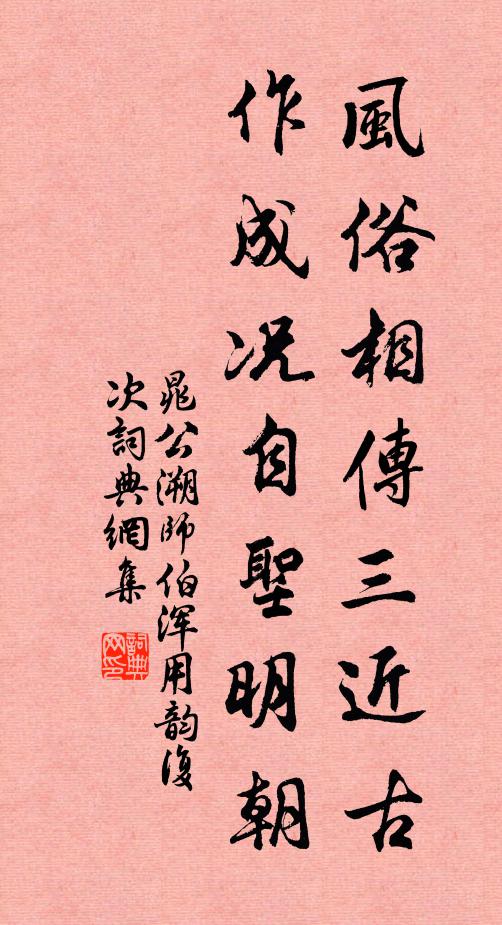 風俗相傳三近古
作成况自聖明朝
晁公溯師伯渾用韵復
次詞典網集
詞典网印